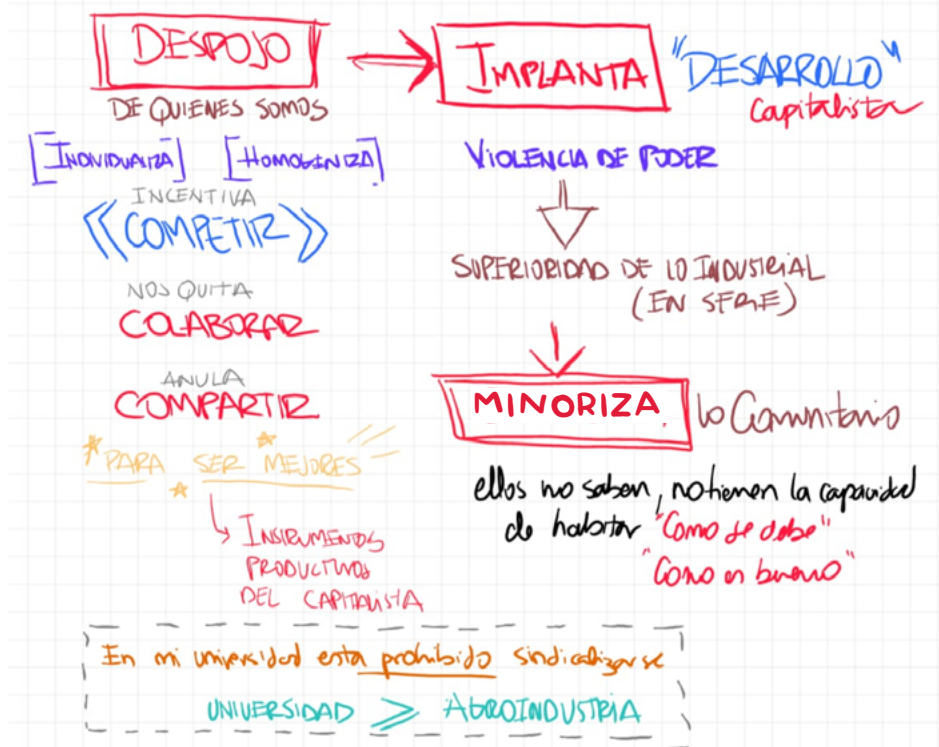 DESPOJO
DE QUIENES SOMOS
[INDIVIDUALIZA] [HOMOGENIZA]
INCENTIVA
《COMPETIR》
NOS QUITA
COLABORAR
ANULA
COMPARTIR
PARA SER MEJORES
INSTRUMENTOS
PRODUCTIVOS
DEL CAPITALISTA
IMPLANTA "DESARROLLO"
Capitalista
VIOLENCIA DE PODER
SUPERIORIDAD DE LO INDUSTRIAL
(EN SERIE)
MINORIZA lo Comunitario
ellos no saben, no tienen la capacidad
de habitar "Como se debe"
"Como es bueno"
En mi universidad esta prohibido sindicalizarse
UNIVERSIDAD > AGROINDUSTRIA